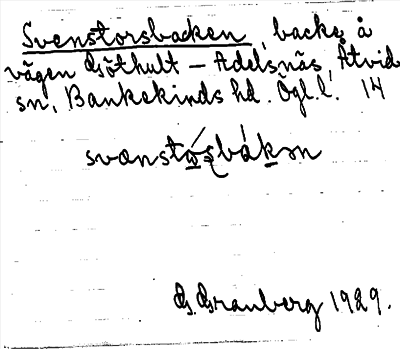 Svenstorsbacken, backe å
vägen Göthult – Adelsnäs, Åtvid
sn, Bankekinds hd. Ögl.l. 14
svænstósbákən
G. Granberg 1929.